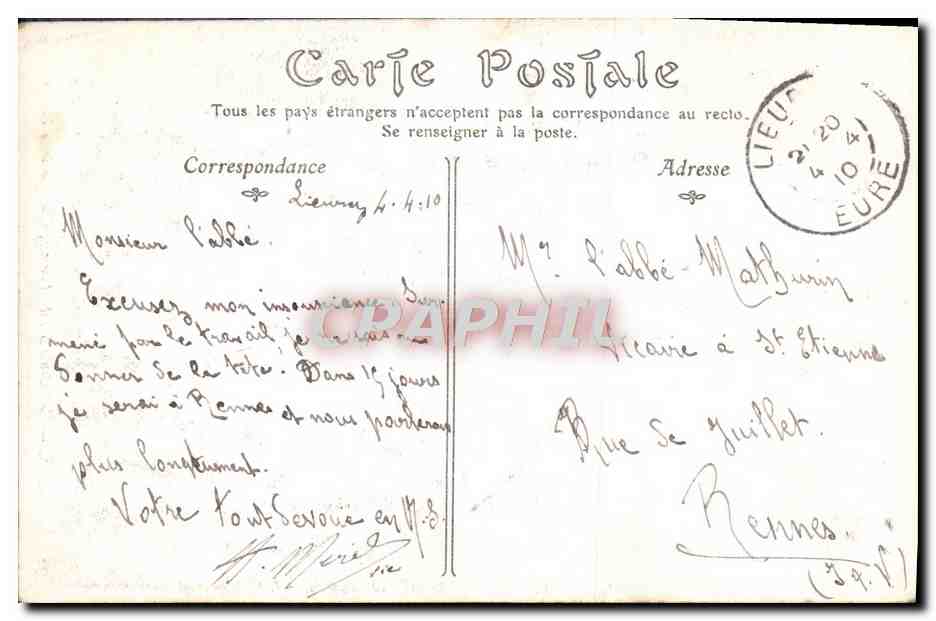 Carte Postale
Tous les pays étrangers n'acceptent pas la correspondance au recto.
Se renseigner à la poste.
Correspondance
Adresse
LIEU
21 20
4 4
10
EURE
4.4.10
Monsieur l'abbé.
Excusez mon insouciance. Sur
mené par le travail, je ne sais où
donner de la tête. Dans 15 jours
je serai à Rennes et nous parlerons
plus longuement.
Votre tout dévoué en N.S.
Mr l'abbé Mathurin
Vicaire à St Etienne
Rue de Juillet.
Rennes.
(I & V)
CRAPHIL